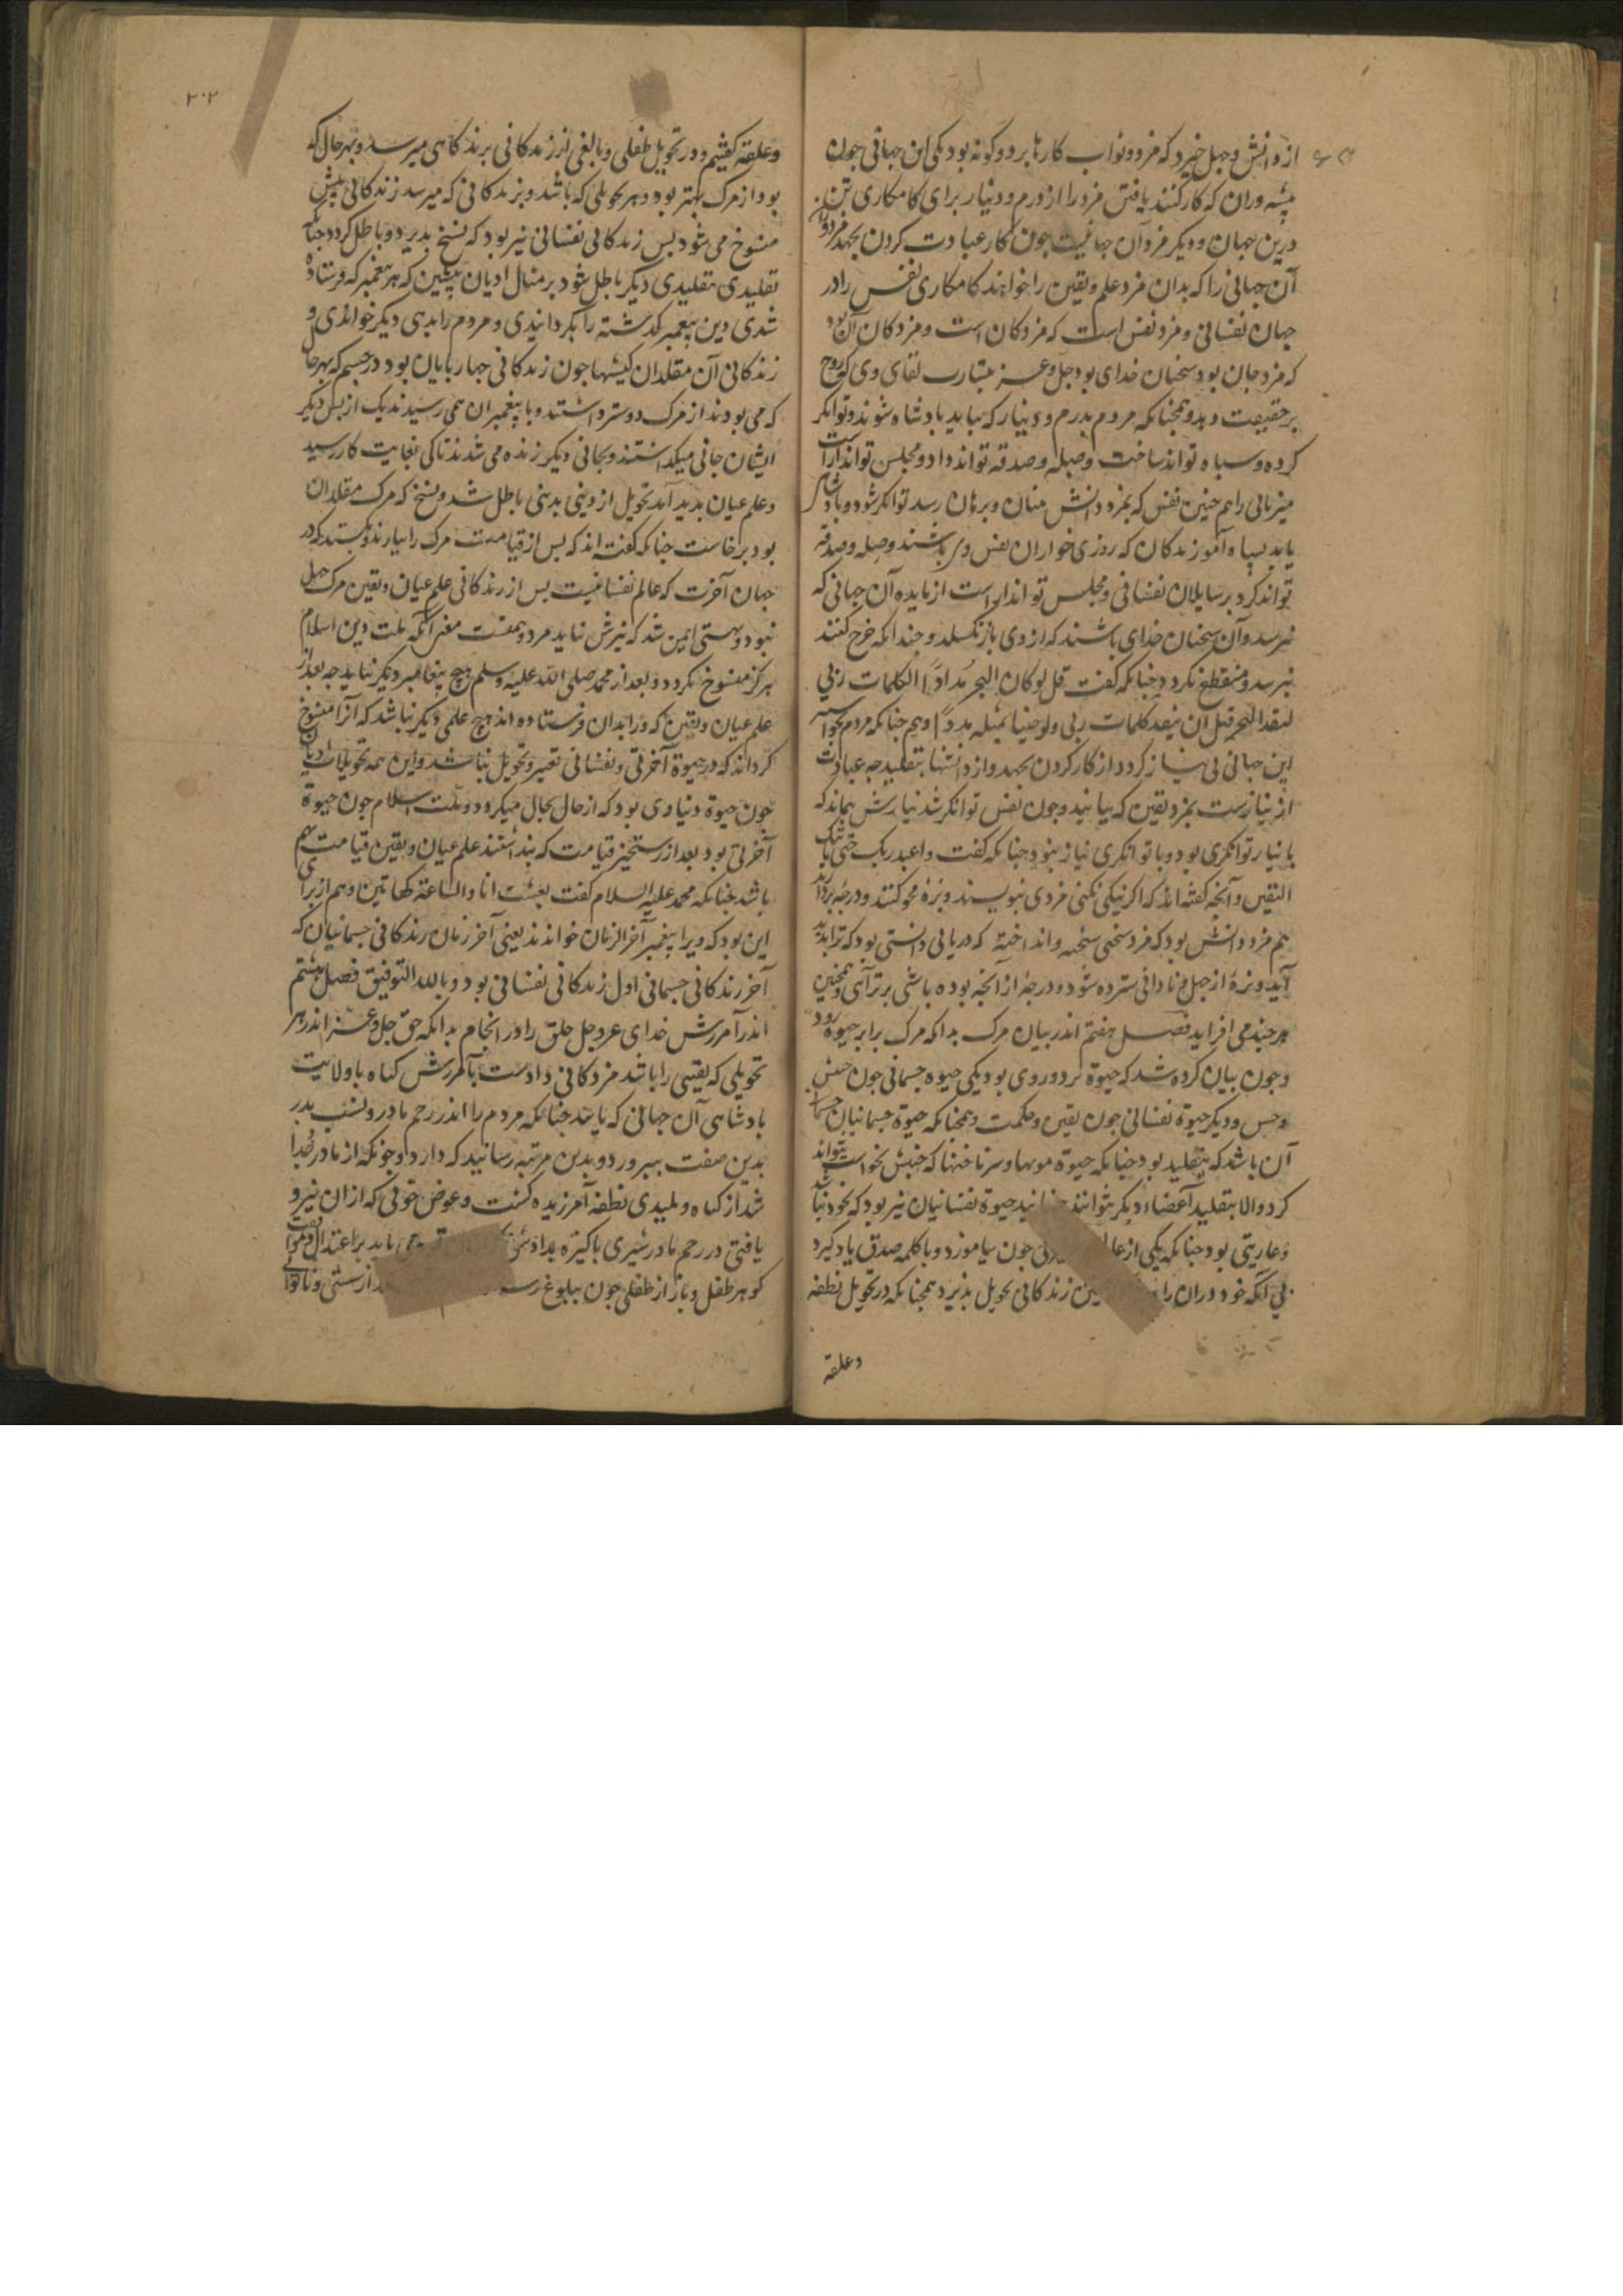 از دانش و جهل خیزد که مزد و ثواب کارها بر دو کونه بود یکی این جهانی چون
پیشه وران که کار کنند یافتن مزد را از درم و دینار برای کامکاری تن
درین جهان و دیکر مزد آن جهانیست چون کار عبادت کردن بجهد مزد
آن جهانی را که بدان مزد علم و یقین را خواهند کامکاری نفس را در
جهان نفسانی و مزد نفس است که مزدکان است و مزدکان آن بود
که مزد جان بود سخنان خدای بود جل و عز بشارت لقای وی که روح
بر حقیقت وبدو همچنانکه مردم بدرم و دینار که بیابد بادشاه شوند و توانکر
کرده و سپاه تواند ساخت وصله و صدقه تواند داد و مجلس تواند آراست
میزبانی را هم چنین نفس که بمزد دانش منان و برهان رسد توانکر شود و بادشاهی
یابد بسپاه آموزندکان که روزی خواران نفس وی باشند وصله و صدقه
تواند کرد بر سایلان نفسانی و مجلس تواند آراست از مایده آن جهانی که
نرسد و آن سخنان خدای باشند که از وی باز نکسلد و چندانکه خرج کنند
نبرسد و منقطع نکردد چنانکه کفت قل لو کان البحر مدادًا لکلمات ربی
لنفد البحر قبل ان ینفد کلمات ربی ولو جئنا بمثله مددًا و هم چنانکه مردم بخواسته
این جهانی بی نیاز کردد از کار کردن بجهد و از دانشها بتقلید جه عبادت
از نیازست بمزد یقین که بیابند و چون نفس توانکر شد نیازش نماند که
با نیاز توانکری بود و با توانکری نیاز نبود چنانکه کفت واعبد ربک حتی یاتیک
الیقین و آنچه کفته اند که اکر نیکی نکنی مزدی بنویسند و بزه محو کنند و درجه بردارند
هم مزد دانش بود که مزد سخنی سخته و انداخته که دریابی دانستی بود که ترا بدید
آید و بزه از جهل و نادانی سترده شود و درجه از آنچه بوده باشی برتر آئی و همچنین
هر چند می افزاید فصل هفتم اندر بیان مرک بدانکه مرک برابر حیوة رود
و چون بیان کرده شد که حیوة بر دو روی بود یکی حیوة جسمانی چون جنبش
و حس و دیکر حیوة نفسانی چون یقین و حکمت و همچنانکه حیوة جسمانیان جسمانی
آن باشد که بتقلید بود چنانکه حیوة مویها و سر ناخنها که جنبش نخواست بتواند
کرد والا بتقلید اعضاء دیکر نتوانند جنبانید حیوة نفسانیان نیز بود که بخود نباشد
و عاریتی بود چنانکه یکی از عا چون بیاموزد و یا کلمه صدق یاد کیرد
بی آنکه خود دران را ین زندکانی تحویل بذیرد همچنانکه در تحویل نطفه
وعلقه
۲۰۲
وعلقه کفتیم و در تحویل طفلی و بالغی از زندکانی بر زندکانی میرسد و بهر حال که
بود از مرک بهتر بود و هر تحویلی که باشد و بزندکانی که میرسد زندکانی پیش
منسوخ می شود پس زندکانی نفسانی نیز بود که نسخ بذیرد و باطل کردد چنانکه
تقلیدی بتقلیدی دیکر باطل شود بر مثال ادیان پیشین که هر پیغمبر که فرستاده
شدی دین پیغمبر کذشته را بکردانیدی و مردم را بدینی دیکر خواندی و
زندکانی آن مقلدان کیشها چون زندکانی چهار بایان بود در جسم که بهر حال
که می بودند از مرک دوستر داشتند و با پیغمبران همی رسیدند یک از پس دیکر
ایشان جانی میکذاشتند و بجانی دیکر زنده می شدند تا کی بغایت کار رسید
و علم عیان بدید آمد تحویل از دینی بدینی باطل شد و نسخ که مرک مقلدان
بود برخاست چنانکه کفته اند که پس از قیامت مرک را بیارند و بکشند که در
جهان آخرت که عالم نفسانیست پس از زندکانی علم عیان و یقین مرک جهل
نبود و هستی ایمن شد که نیزش نباید مرد و همینست معنی آنکه ملت دین اسلام
هرکز منسوخ نکردد و بعد از محمد صلی الله علیه وسلم هیچ پیغامبر دیکر نیاید جه بعد از
علم عیان و یقین که ورا بدان فرستاده اند هیچ علمی دیکر نباشد که آنرا منسوخ
کرداند که در حیوة آخرتی و نفسانی تغییر و تحویل نباشد و این همه تحویلات ادیان
چون حیوة دنیاوی بود که از حال بحال میکردد و ملت اسلام چون حیوة
آخرتی بود بعد از رستخیز قیامت که بنداشتند علم عیان و یقین قیامت هم
باشد چنانکه محمد علیه السلام کفت بعثت انا والساعة کهاتین و هم از برای
این بود که ویرا پیغمبر آخر الزمان خواندند یعنی آخر زمان زندکانی جسمانیان که
آخر زندکانی جسمانی اول زندکانی نفسانی بود و بالله التوفیق فصل هشتم
اندر آمرزش خدای عز و جل خلق را در انجام بدانکه حق جل و عز اندر هر
تحویلی که یقینی را باشد مزدکانی دادست بآمرزش کناه با ولایت
بادشاهی آن جهانی که یابند چنانکه مردم را اندر رحم مادر و پشت پدر
بدین صفت ببرورد و بدین مرتبه رسانید که دارد و چونکه از مادر جدا
شد از کناه و پلیدی نطفه آمرزیده کشت و عوض خونی که از آن نیرو
یافتی در رحم مادر شیری باکیزه بدادش می یابد بر اعتدال
کوهر طفل و باز از طفلی چون ببلوغ رسد از سستی و ناتوانی